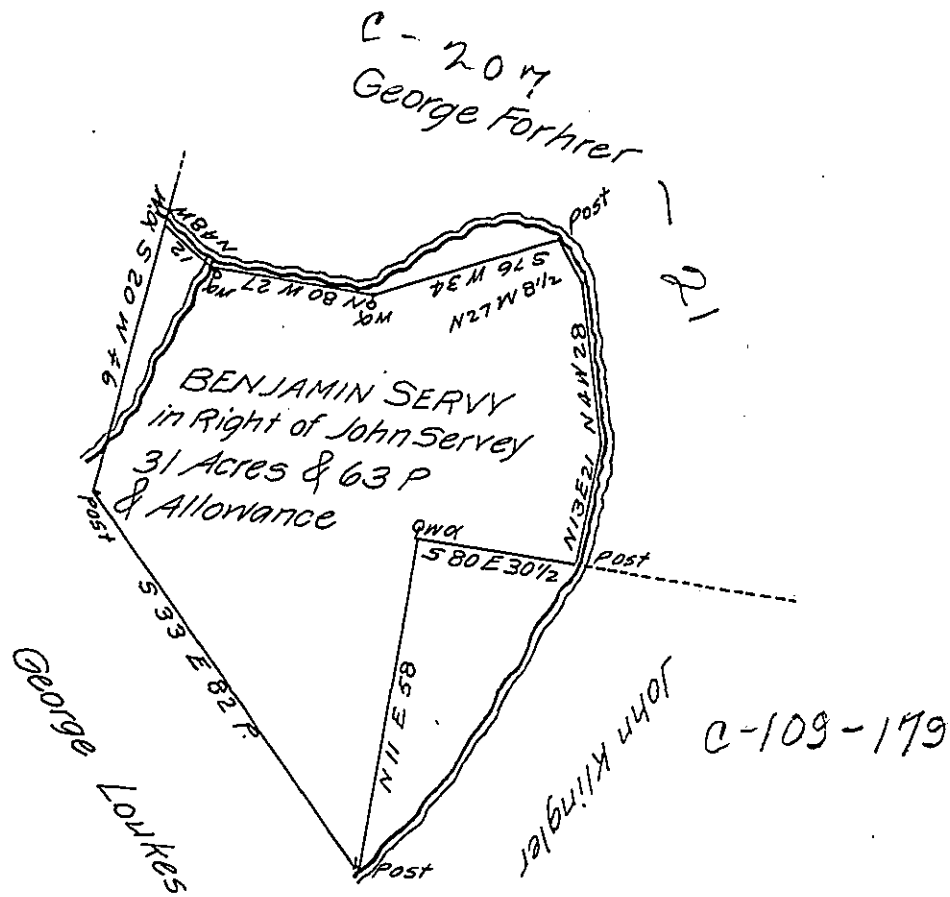 C - 207
George Forhrer
- 21
Post
N48W
12
W.O.
S 20 W 46
wo
N 80 W 27
wo
S 76 W 34
N27W 8 1/2
N4W28
N13E21
BENJAMIN SERVY
in Right of John Servey
31 Acres & 63 P
& Allowance
Post
wo
S 80 E 30 1/2
Post
S 33 E 82 P.
N 11 E 58
Post
George Loukes
John Klingler
C-109-179